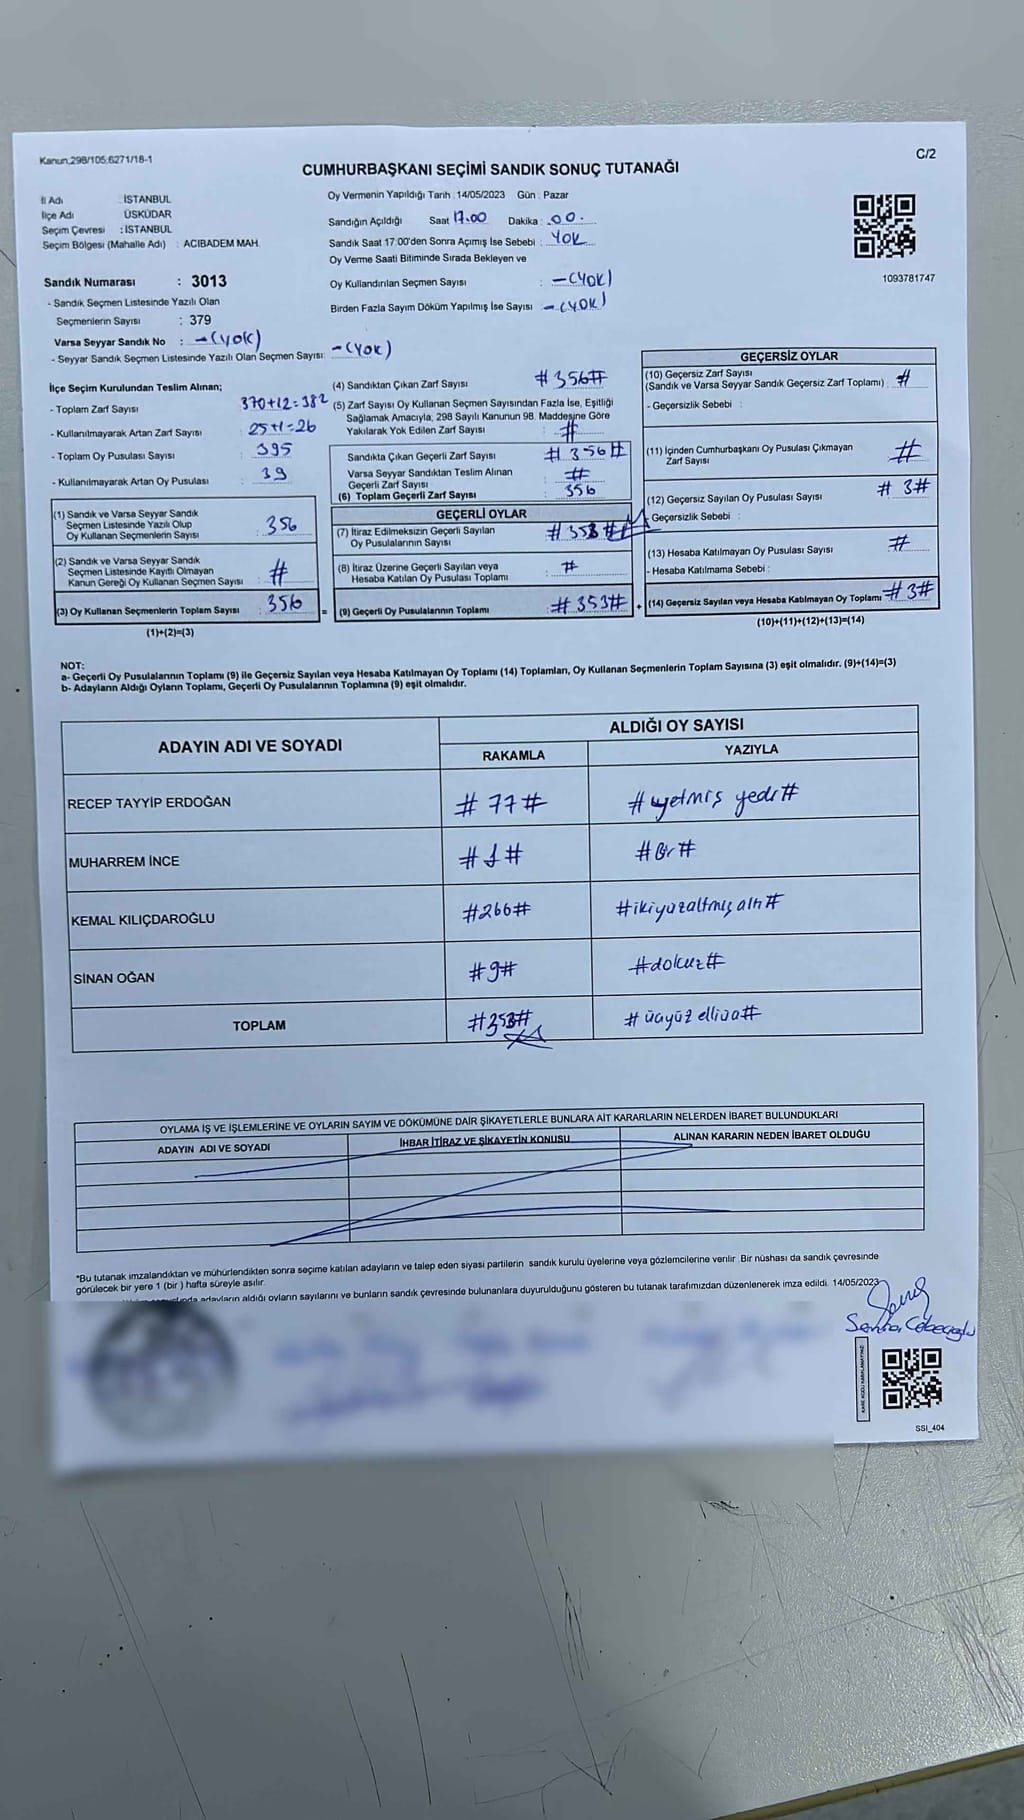 Kanun.298/105;6271/18-1
C/2
CUMHURBAŞKANI SEÇİMİ SANDIK SONUÇ TUTANAĞI
İl Adı : İSTANBUL
İlçe Adı : ÜSKÜDAR
Seçim Çevresi : İSTANBUL
Seçim Bölgesi (Mahalle Adı) : ACIBADEM MAH.
Oy Vermenin Yapıldığı Tarih : 14/05/2023 Gün : Pazar
Sandığın Açıldığı Saat 17.00 Dakika : 00.
Sandık Saat 17.00'den Sonra Açımış İse Sebebi : YOK
Oy Verme Saati Bitiminde Sırada Bekleyen ve
Oy Kullandırılan Seçmen Sayısı : -(YOK)
Birden Fazla Sayım Döküm Yapılmış İse Sayısı -(YOK)
1093781747
Sandık Numarası : 3013
- Sandık Seçmen Listesinde Yazılı Olan
Seçmenlerin Sayısı : 379
Varsa Seyyar Sandık No : -(YOK)
- Seyyar Sandık Seçmen Listesinde Yazılı Olan Seçmen Sayısı: -(YOK)
İlçe Seçim Kurulundan Teslim Alınan;
- Toplam Zarf Sayısı 370+12=382
- Kullanılmayarak Artan Zarf Sayısı : 25+1=26
- Toplam Oy Pusulası Sayısı : 395
- Kullanılmayarak Artan Oy Pusulası : 39
(1) Sandık ve Varsa Seyyar Sandık
Seçmen Listesinde Yazılı Olup
Oy Kullanan Seçmenlerin Sayısı : 356
(2) Sandık ve Varsa Seyyar Sandık
Seçmen Listesinde Kayıtlı Olmayan
Kanun Gereği Oy Kullanan Seçmen Sayısı : #
(3) Oy Kullanan Seçmenlerin Toplam Sayısı : 356
(1)+(2)=(3)
(4) Sandıktan Çıkan Zarf Sayısı # 356#
(5) Zarf Sayısı Oy Kullanan Seçmen Sayısından Fazla İse, Eşitliği
Sağlamak Amacıyla; 298 Sayılı Kanunun 98. Maddesine Göre
Yakılarak Yok Edilen Zarf Sayısı : #
Sandıkta Çıkan Geçerli Zarf Sayısı # 356 #
Varsa Seyyar Sandıktan Teslim Alınan
Geçerli Zarf Sayısı : #
(6) Toplam Geçerli Zarf Sayısı : 356
GEÇERLİ OYLAR
(7) İtiraz Edilmeksizin Geçerli Sayılan
Oy Pusulalarının Sayısı : # 353 #
(8) İtiraz Üzerine Geçerli Sayılan veya
Hesaba Katılan Oy Pusulası Toplamı : #
= (9) Geçerli Oy Pusulalarının Toplamı # 353#
GEÇERSİZ OYLAR
(10) Geçersiz Zarf Sayısı
(Sandık ve Varsa Seyyar Sandık Geçersiz Zarf Toplamı) : #
- Geçersizlik Sebebi :
(11) İçinden Cumhurbaşkanı Oy Pusulası Çıkmayan
Zarf Sayısı #
(12) Geçersiz Sayılan Oy Pusulası Sayısı # 3#
- Geçersizlik Sebebi :
(13) Hesaba Katılmayan Oy Pusulası Sayısı : #
- Hesaba Katılmama Sebebi :
+ (14) Geçersiz Sayılan veya Hesaba Katılmayan Oy Toplamı # 3#
(10)+(11)+(12)+(13)=(14)
NOT:
a- Geçerli Oy Pusulalarının Toplamı (9) ile Geçersiz Sayılan veya Hesaba Katılmayan Oy Toplamı (14) Toplamları, Oy Kullanan Seçmenlerin Toplam Sayısına (3) eşit olmalıdır. (9)+(14)=(3)
b- Adayların Aldığı Oyların Toplamı, Geçerli Oy Pusulalarının Toplamına (9) eşit olmalıdır.
ADAYIN ADI VE SOYADI
ALDIĞI OY SAYISI
RAKAMLA YAZIYLA
RECEP TAYYİP ERDOĞAN # 77# # yetmiş yedi#
MUHARREM İNCE # 1 # # Bir #
KEMAL KILIÇDAROĞLU #266# #ikiyüzaltmış altı #
SİNAN OĞAN #9# #dokuz#
TOPLAM #353# # üçyüz elliüç#
OYLAMA İŞ VE İŞLEMLERİNE VE OYLARIN SAYIM VE DÖKÜMÜNE DAİR ŞİKAYETLERLE BUNLARA AİT KARARLARIN NELERDEN İBARET BULUNDUKLARI
ADAYIN ADI VE SOYADI İHBAR İTİRAZ VE ŞİKAYETİN KONUSU ALINAN KARARIN NEDEN İBARET OLDUĞU
*Bu tutanak imzalandıktan ve mühürlendikten sonra seçime katılan adayların ve talep eden siyasi partilerin sandık kurulu üyelerine veya gözlemcilerine verilir. Bir nüshası da sandık çevresinde
görülecek bir yere 1 (bir) hafta süreyle asılır.
adayların aldığı oyların sayılarını ve bunların sandık çevresinde bulunanlara duyurulduğunu gösteren bu tutanak tarafımızdan düzenlenerek imza edildi. 14/05/2023
SSI_404